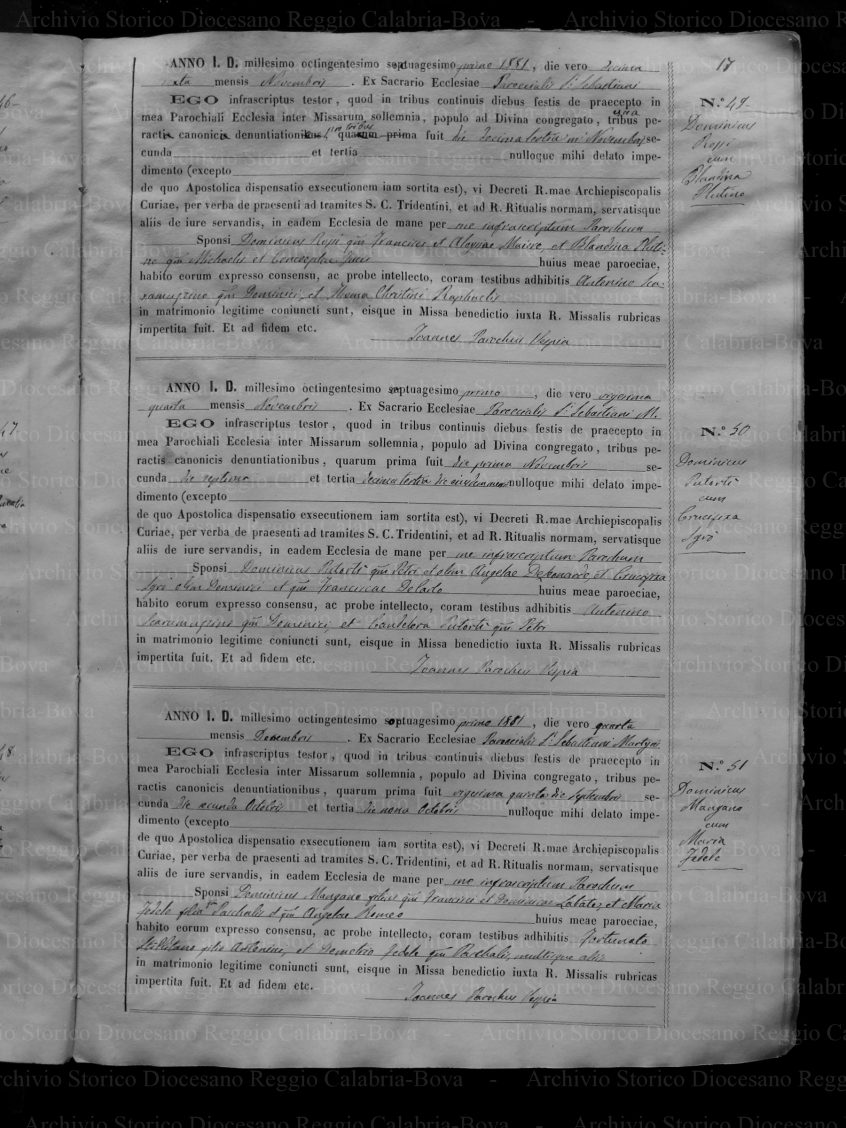 17
ANNO I. D. millesimo octingentesimo septuagesimo primo 1881, die vero Decima
mensis Novembris . Ex Sacrario Ecclesiae Paroccialis S. Sebastiani
EGO infrascriptus testor, quod in tribus continuis diebus festis de praecepto in
mea Parochiali Ecclesia inter Missarum sollemnia, populo ad Divina congregato, tribus una pe-
ractis canonicis denuntiationibus, pro tribus quarum prima fuit die Decima tertia Novembris se-
cunda et tertia nulloque mihi delato impe-
dimento (excepto
de quo Apostolica dispensatio exsecutionem iam sortita est), vi Decreti R.mae Archiepiscopalis
Curiae, per verba de praesenti ad tramites S. C. Tridentini, et ad R. Ritualis normam, servatisque
aliis de iure servandis, in eadem Ecclesia de mane per me infrascriptum Parochum
Sponsi Dominicus Rossi qm Francisci et Aloysiae et Blandina Pluti-
no qm Michaelis et huius meae paroeciae,
habito eorum expresso consensu, ac probe intellecto, coram testibus adhibitis Antonino Sca-
ramuzzino qm Dominici, et Raphaelis
in matrimonio legitime coniuncti sunt, eisque in Missa benedictio iuxta R. Missalis rubricas
impertita fuit. Et ad fidem etc.
Ioannes Parochus
N.º 49
Dominicus
Rossi
cum
Blandina
Plutino
ANNO I. D. millesimo octingentesimo septuagesimo primo , die vero vigesima
quarta mensis Novembris . Ex Sacrario Ecclesiae Paroccialis S. Sebastiani M.
EGO infrascriptus testor, quod in tribus continuis diebus festis de praecepto in
mea Parochiali Ecclesia inter Missarum sollemnia, populo ad Divina congregato, tribus pe-
ractis canonicis denuntiationibus, quarum prima fuit die prima Novembris se-
cunda die septima et tertia decima tertia nulloque mihi delato impe-
dimento (excepto
de quo Apostolica dispensatio exsecutionem iam sortita est), vi Decreti R.mae Archiepiscopalis
Curiae, per verba de praesenti ad tramites S. C. Tridentini, et ad R. Ritualis normam, servatisque
aliis de iure servandis, in eadem Ecclesia de mane per me infrascriptum Parochum
Sponsi Dominicus Putortì qm Petri et olim Angelae et Crucifixa
Sgrò olim Dominici et qm Franciscae huius meae paroeciae,
habito eorum expresso consensu, ac probe intellecto, coram testibus adhibitis Antonino
Scaramuzzino qm Dominici, et Putortì qm Petri
in matrimonio legitime coniuncti sunt, eisque in Missa benedictio iuxta R. Missalis rubricas
impertita fuit. Et ad fidem etc.
Ioannes Parochus
N.º 50
Dominicus
Putortì
cum
Crucifixa
Sgrò
ANNO I. D. millesimo octingentesimo septuagesimo primo 1881 , die vero quarta
mensis Decembris . Ex Sacrario Ecclesiae Paroccialis S. Sebastiani Martyris
EGO infrascriptus testor, quod in tribus continuis diebus festis de praecepto in
mea Parochiali Ecclesia inter Missarum sollemnia, populo ad Divina congregato, tribus pe-
ractis canonicis denuntiationibus, quarum prima fuit vigesima quinta die Septembris se-
cunda die secunda Octobris et tertia die nona Octobris nulloque mihi delato impe-
dimento (excepto
de quo Apostolica dispensatio exsecutionem iam sortita est), vi Decreti R.mae Archiepiscopalis
Curiae, per verba de praesenti ad tramites S. C. Tridentini, et ad R. Ritualis normam, servatisque
aliis de iure servandis, in eadem Ecclesia de mane per me infrascriptum Parochum
Sponsi Dominicus Mangano filius qm Francisci et Dominicae Labate, et Maria
Fedele filia Paschalis et qm Angelae Romeo huius meae paroeciae,
habito eorum expresso consensu, ac probe intellecto, coram testibus adhibitis Fortunato
filio Antonini, et Demetrio Fedele qm Paschalis, multisque aliis
in matrimonio legitime coniuncti sunt, eisque in Missa benedictio iuxta R. Missalis rubricas
impertita fuit. Et ad fidem etc.
Ioannes Parochus
N.º 51
Dominicus
Mangano
cum
Maria
Fedele
Archivio Storico Diocesano Reggio Calabria-Bova